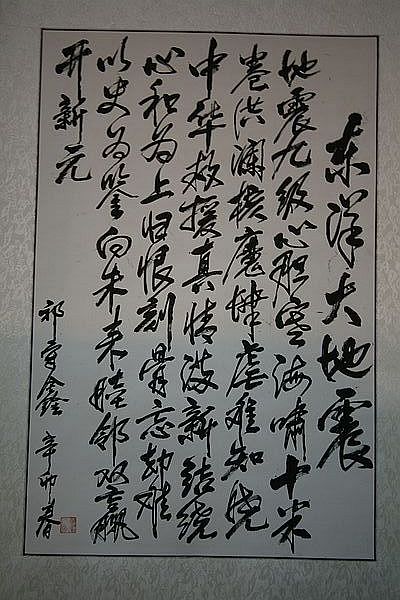 东洋大地震
地震九级心胆寒海啸十米
卷洪澜核魔肆虐难知晓
中华救援真情激新结绕
心和为上旧恨刻骨忘劫难
以史为鉴向未来睦邻双赢
开新元
祁鑫辛卯春